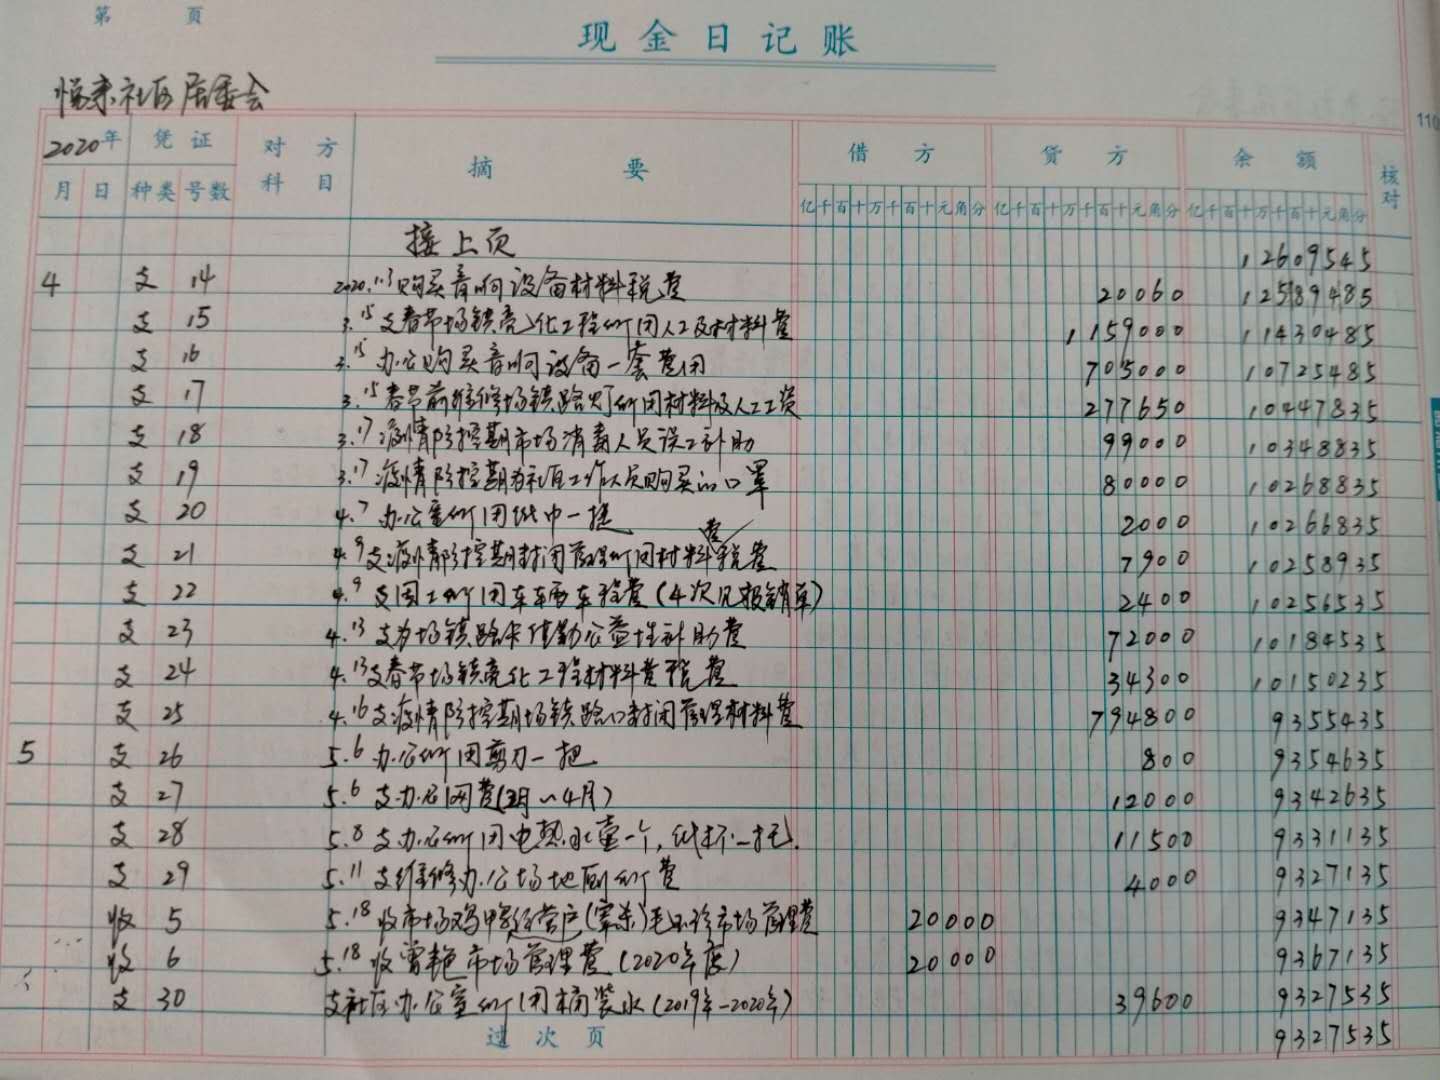 第 页
现金日记账
悦来社区居委会
110
2020年 凭证 对方科目 摘要 借方 贷方 余额 核对
月 日 种类 号数 亿千百十万千百十元角分 亿千百十万千百十元角分 亿千百十万千百十元角分
接上页 12609545
4 支 14 2020.1.3购买音响设备材料税费 20060 12589485
支 15 3.15支春节场镇亮化工程所用人工及材料费 1159000 11430485
支 16 3.15办公购买音响设备一套费用 705000 10725485
支 17 3.15春节前维修场镇路灯所用材料及人工工资 277650 10447835
支 18 3.17疫情防控期市场消毒人员误工补助 99000 10348835
支 19 3.17疫情防控期为社区工作人员购买的口罩 80000 10268835
支 20 4.7办公室所用纸巾一提 2000 10266835
支 21 4.9支疫情防控期封闭管理所用材料费税费 7900 10258935
支 22 4.9支因工所用车辆车程费(4次见报销单) 2400 10256535
支 23 4.13支为场镇路卡值勤公益性补助费 72000 10184535
支 24 4.13支春节场镇亮化工程材料费税费 34300 10150235
支 25 4.16支疫情防控期场镇路口封闭管理材料费 794800 9355435
5 支 26 5.6办公所用剪刀一把 800 9354635
支 27 5.6支办公网费(3月~4月) 12000 9342635
支 28 5.8支办公所用电热水壶一个,纸杯一托. 11500 9331135
支 29 5.11支维修办公场地厕所费 4000 9327135
收 5 5.18收市场鸡鸭经营户(宰杀)毛玉珍市场管理费 20000 9347135
收 6 5.18收曾艳市场管理费(2020年度) 20000 9367135
支 30 支社区办公室所用桶装水(2019年-2020年) 39600 9327535
过次页 9327535